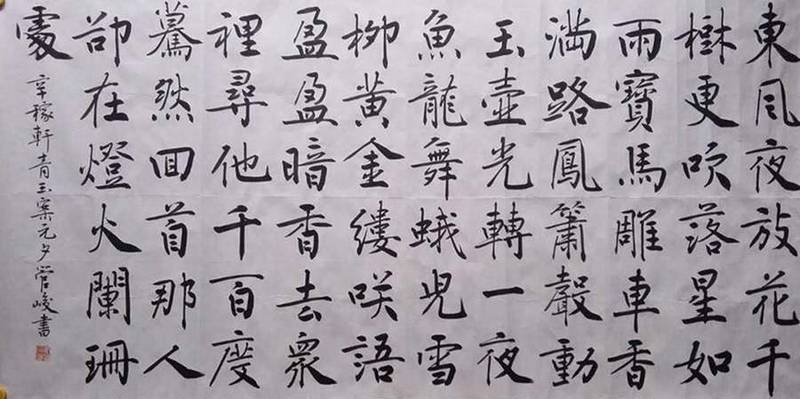 東風夜放花千
樹更吹落星如
雨寶馬雕車香
滿路鳳簫聲動
玉壺光轉一夜
魚龍舞蛾兒雪
柳黃金縷咲語
盈盈暗香去衆
裡尋他千百度
驀然回首那人
卻在燈火闌珊
處
辛稼軒青玉案元夕管峻書